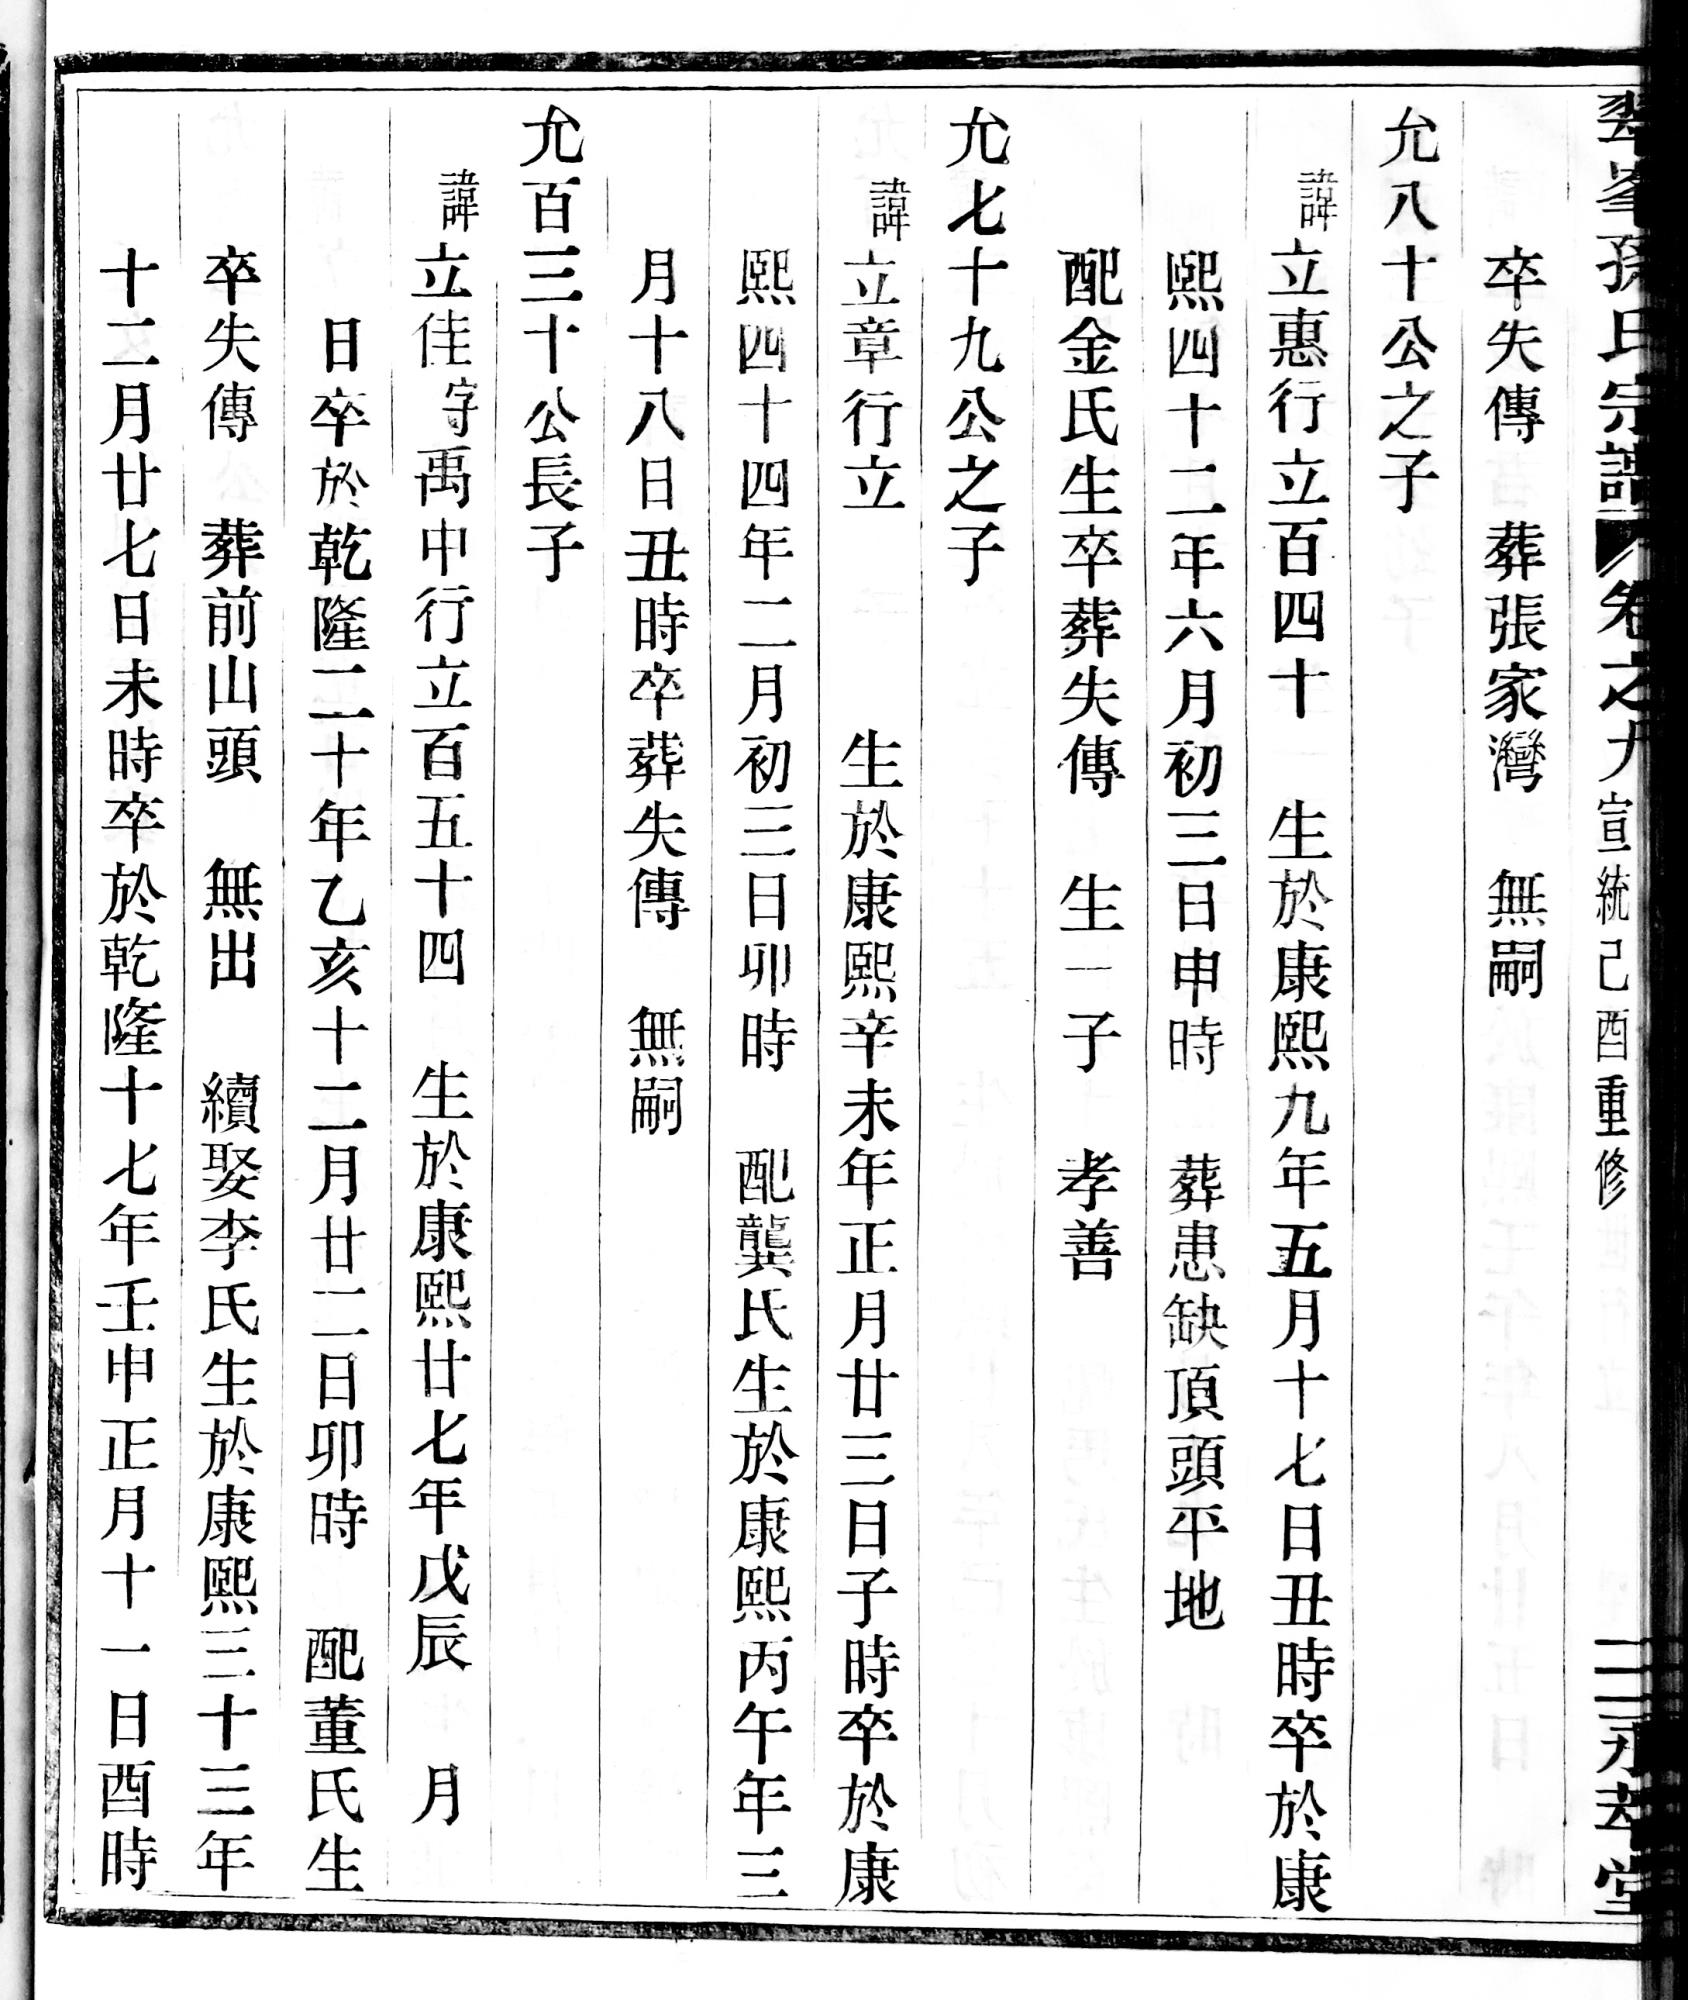 翠峯孫氏宗譜 卷之九 宣統己酉重修 二 永孝堂
卒失傳 葬張家灣 無嗣
允八十公之子
諱立惠行立百四十一 生於康熙九年五月十七日丑時卒於康
熙四十二年六月初三日申時 葬患缺頂頭平地
配金氏生卒葬失傳 生一子 孝善
允七十九公之子
諱立章行立 生於康熙辛未年正月廿三日子時卒於康
熙四十四年二月初三日卯時 配龔氏生於康熙丙午年三
月十八日丑時卒葬失傳 無嗣
允百三十公長子
諱立佳字禹中行立百五十四 生於康熙廿七年戊辰 月
日卒於乾隆二十年乙亥十二月廿二日卯時 配董氏生
卒失傳 葬前山頭 無出 續娶李氏生於康熙三十三年
十二月廿七日未時卒於乾隆十七年壬申正月十一日酉時